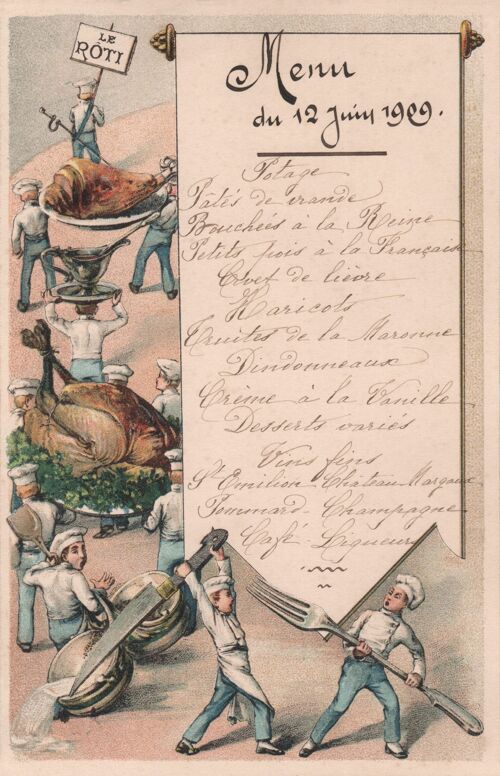 LE
RÔTI
Menu
du 12 Juin 1909.
Potage
Pâtés de viande
Bouchées à la Reine
Petits pois à la Française
Civet de lièvre
Haricots
Truites de la Maronne
Dindonneaux
Crème à la Vanille
Desserts variés
Vins fins
St Emilion - Chateau-Margaux
Pommard - Champagne
Café - Liqueurs